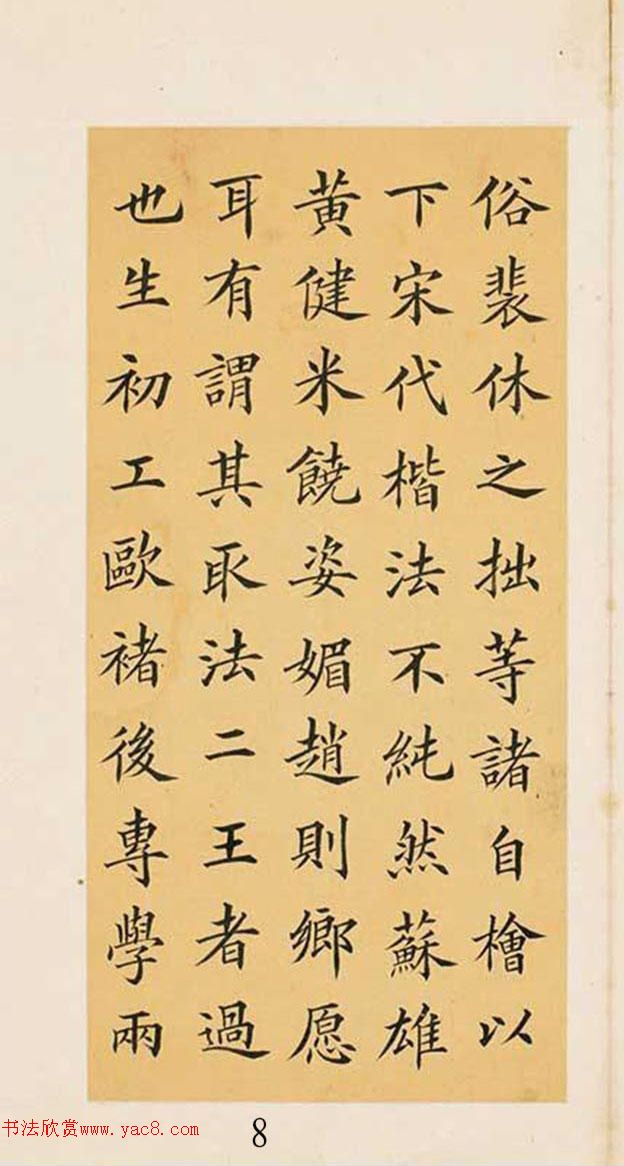 俗裴休之拙等諸自檜以
下宋代楷法不純然蘇雄
黃健米饒姿媚趙則鄉愿
耳有謂其取法二王者過
也生初工歐褚後專學兩
书法欣赏www.yac8.com
8